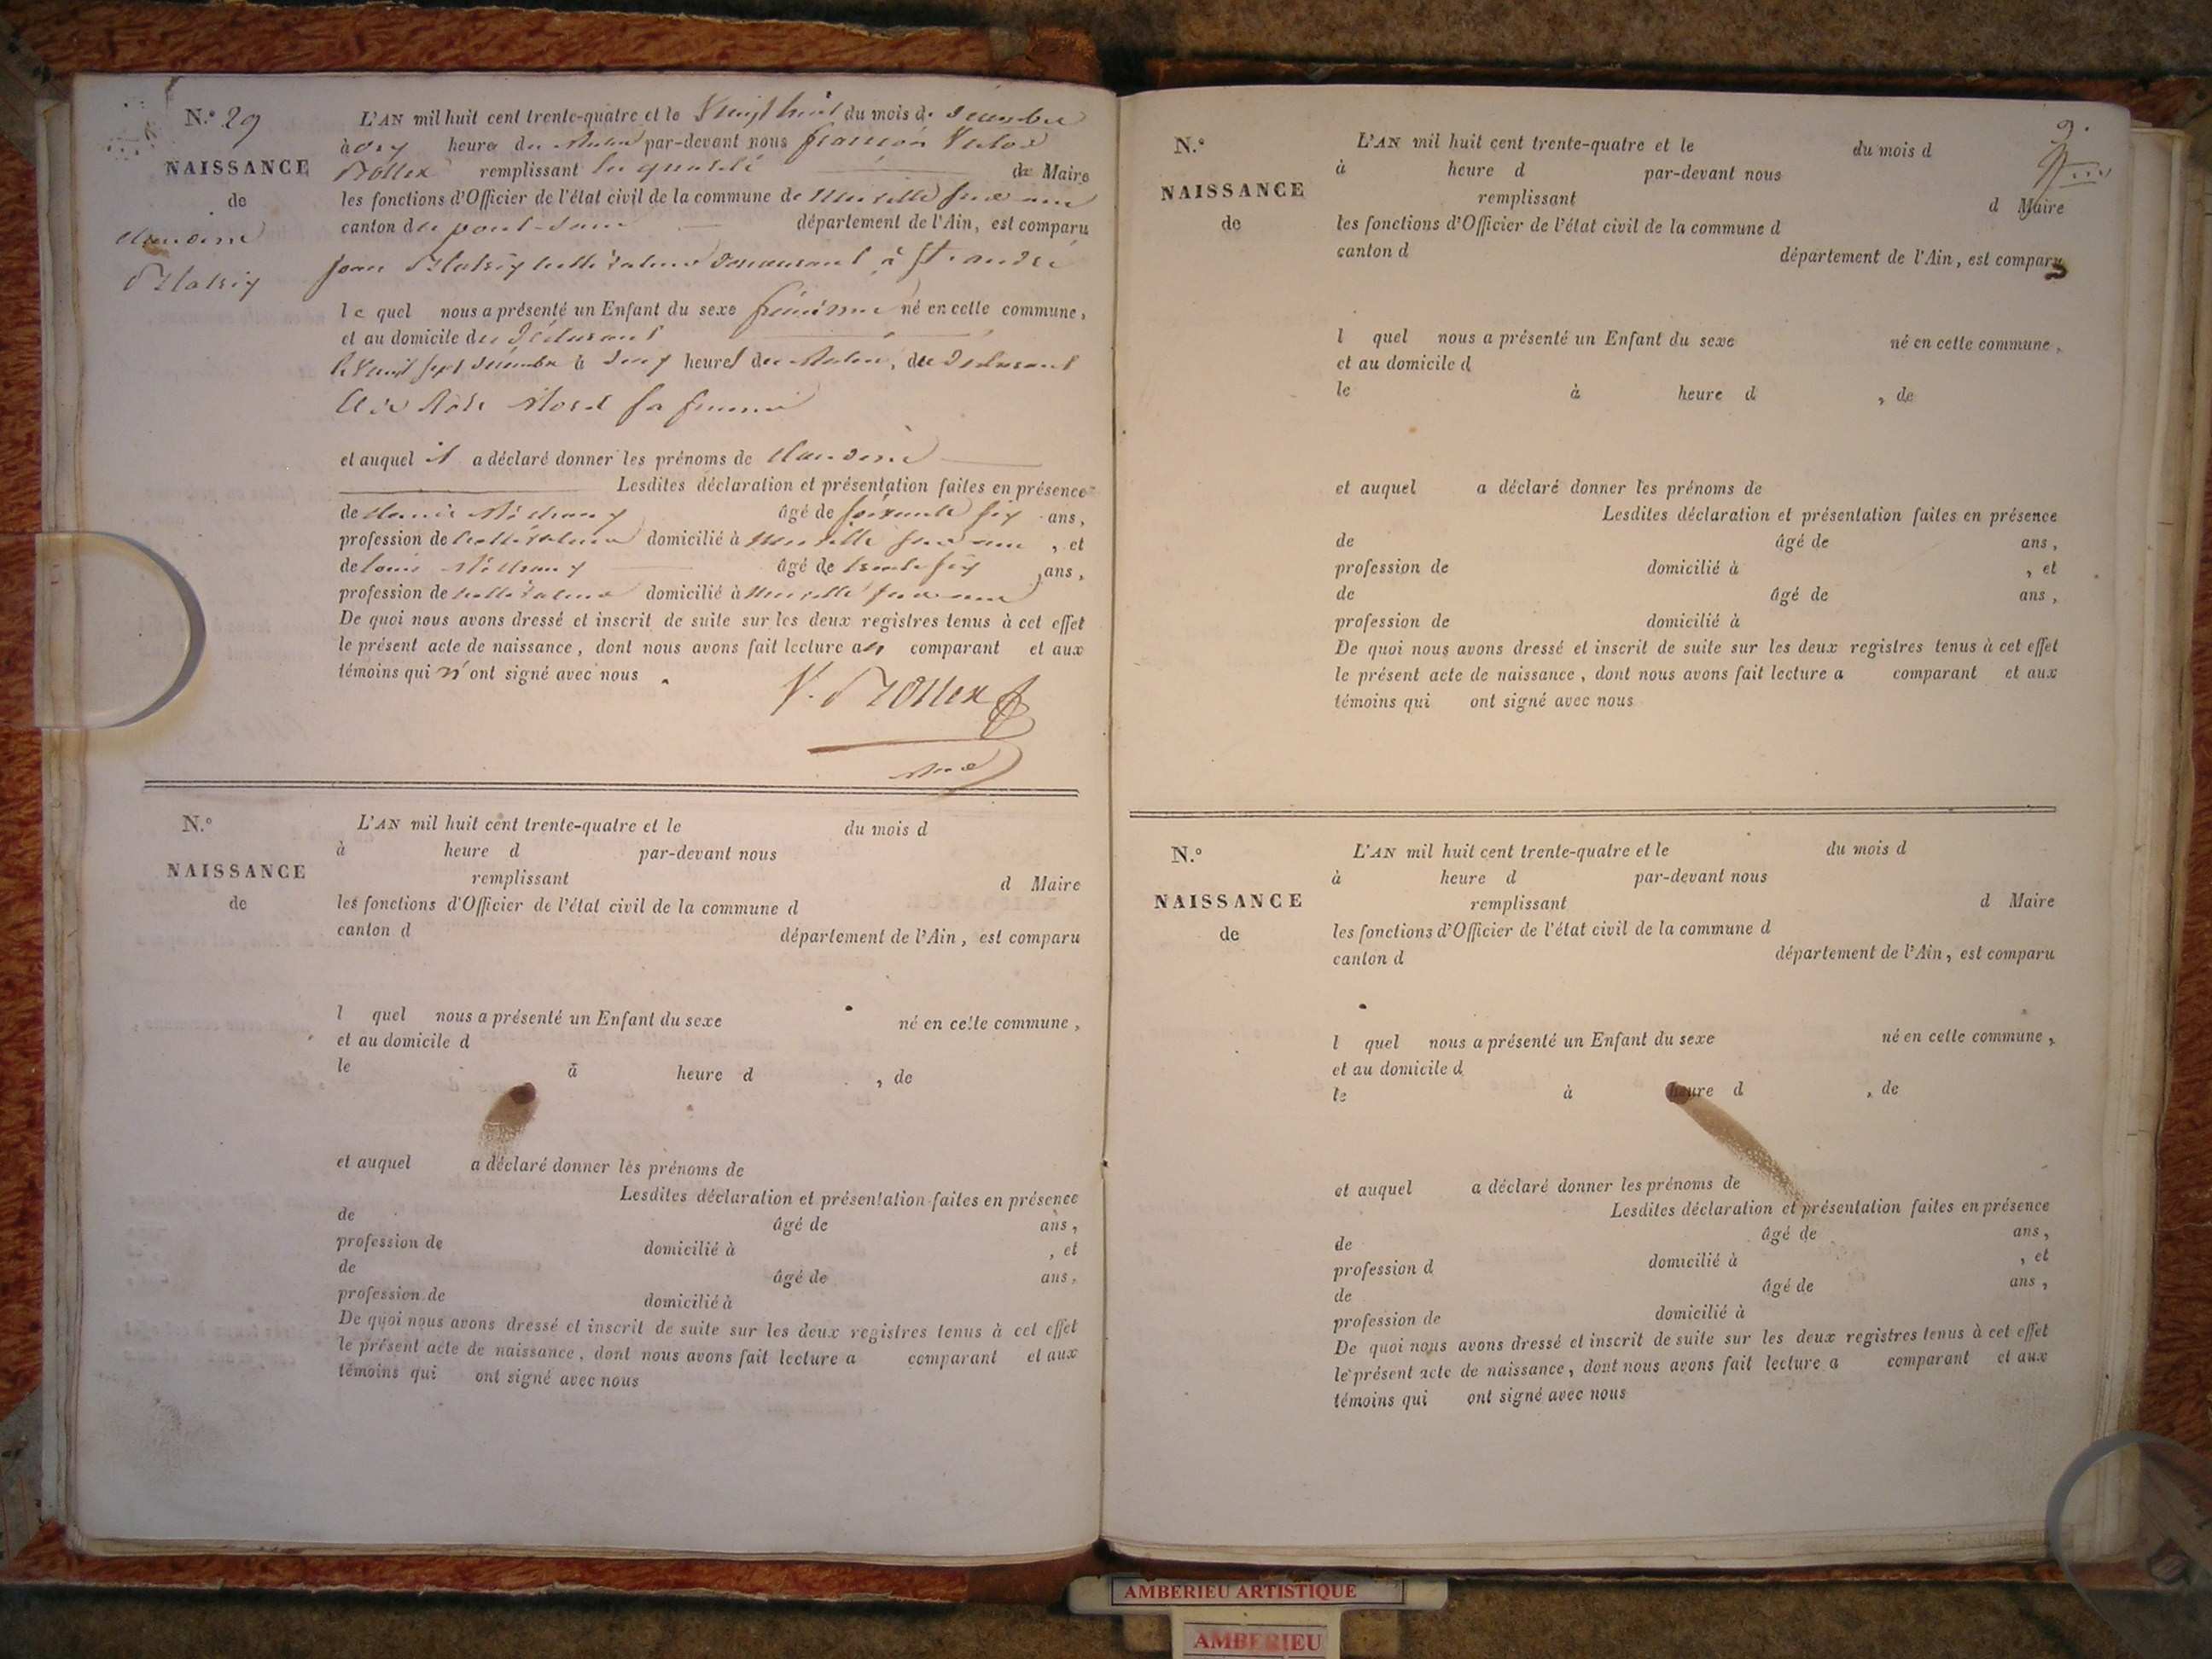 N.° 29
NAISSANCE
de
Claudine
L'AN mil huit cent trente-quatre et le Vingt huit du mois de décembre
à onz heures du Matin par-devant nous françois Victor
Brollex remplissant les qualité de Maire
les fonctions d'Officier de l'état civil de la commune de Neuville sur ain
canton de pont-dain département de l'Ain, est comparu
cultivateur demeurant à St. andré
le quel nous a présenté un Enfant du sexe féminin né en cette commune,
et au domicile du déclarant
le Vingt sept décembre à heures du Matin, du déclarant
sa femme
et auquel il a déclaré donner les prénoms de Claudine
Lesdites déclaration et présentation faites en présence
de âgé de soixante six ans,
profession de cultivateur domicilié à Neuville sur ain, et
de louis âgé de trente six ans,
profession de cultivateur domicilié à Neuville sur ain
De quoi nous avons dressé et inscrit de suite sur les deux registres tenus à cet effet
le présent acte de naissance, dont nous avons fait lecture au comparant et aux
témoins qui n'ont signé avec nous.
V. Brollex
N.°
NAISSANCE
de
L'AN mil huit cent trente-quatre et le du mois d
à heure d par-devant nous
remplissant d Maire
les fonctions d'Officier de l'état civil de la commune d
canton d département de l'Ain, est comparu
l quel nous a présenté un Enfant du sexe né en cette commune,
et au domicile d
le à heure d , de
et auquel a déclaré donner les prénoms de
Lesdites déclaration et présentation faites en présence
de âgé de ans,
profession de domicilié à , et
de âgé de ans,
profession de domicilié à
De quoi nous avons dressé et inscrit de suite sur les deux registres tenus à cet effet
le présent acte de naissance, dont nous avons fait lecture a comparant et aux
témoins qui ont signé avec nous
9.
N.°
NAISSANCE
de
L'AN mil huit cent trente-quatre et le du mois d
à heure d par-devant nous
remplissant d Maire
les fonctions d'Officier de l'état civil de la commune d
canton d département de l'Ain, est comparu
l quel nous a présenté un Enfant du sexe né en cette commune,
et au domicile d
le à heure d , de
et auquel a déclaré donner les prénoms de
Lesdites déclaration et présentation faites en présence
de âgé de ans,
profession de domicilié à , et
de âgé de ans,
profession de domicilié à
De quoi nous avons dressé et inscrit de suite sur les deux registres tenus à cet effet
le présent acte de naissance, dont nous avons fait lecture a comparant et aux
témoins qui ont signé avec nous
N.°
NAISSANCE
de
L'AN mil huit cent trente-quatre et le du mois d
à heure d par-devant nous
remplissant d Maire
les fonctions d'Officier de l'état civil de la commune d
canton d département de l'Ain, est comparu
l quel nous a présenté un Enfant du sexe né en cette commune,
et au domicile d
le à heure d , de
et auquel a déclaré donner les prénoms de
Lesdites déclaration et présentation faites en présence
de âgé de ans,
profession d domicilié à , et
de âgé de ans,
profession de domicilié à
De quoi nous avons dressé et inscrit de suite sur les deux registres tenus à cet effet
le présent acte de naissance, dont nous avons fait lecture a comparant et aux
témoins qui ont signé avec nous
AMBERIEU ARTISTIQUE
AMBERIEU